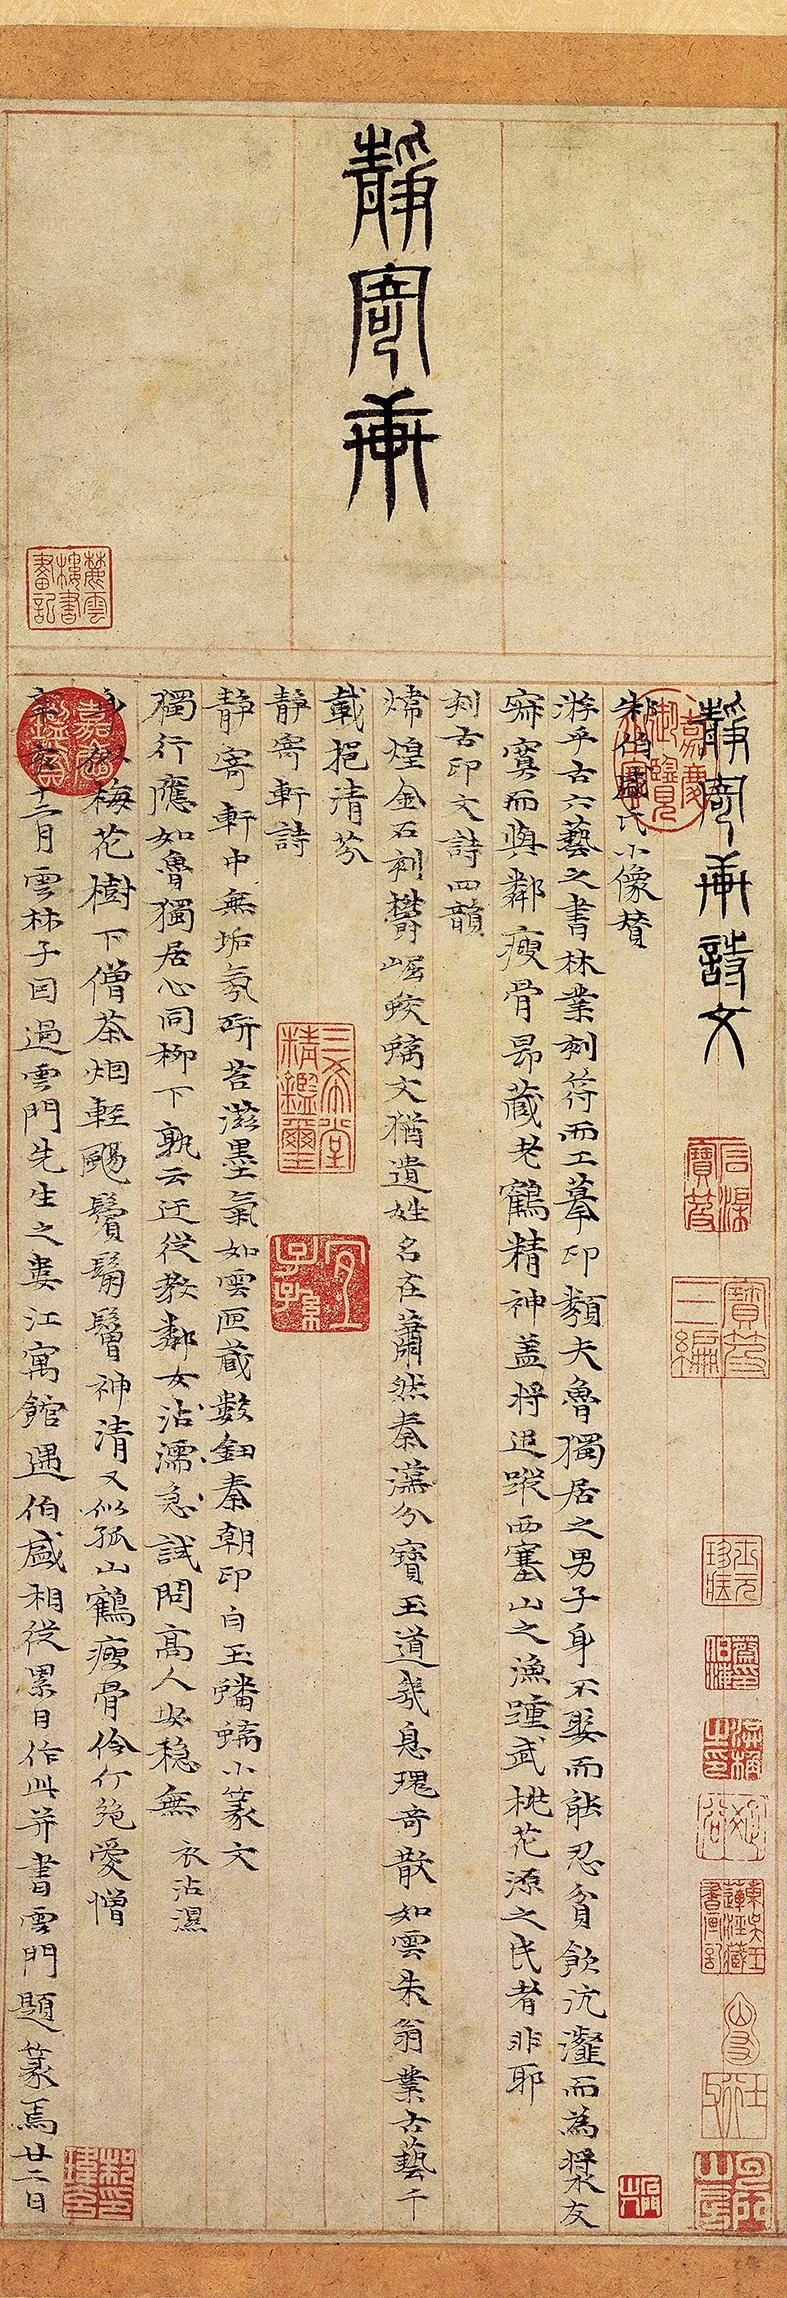 靜寄軒
靜寄軒詩文
朱伯盛氏小像贊
游乎古六藝之書林業刻符而工摹印類夫魯獨居之男子身不娶而能忍貧飲沆瀣而為漿友
寂寞而與鄰瘦骨昂藏老鶴精神蓋將追蹤西塞山之漁踵武桃花源之民者非耶
刻古印文詩四韻
煒煌金石刻鬱崛蛟螭文猶遺姓名在蕭然秦漢分寶玉道幾息瑰奇散如雲朱翁業古藝千
載挹清芬
靜寄軒詩
靜寄軒中無垢氛研苔滋墨氣如雲匣藏數鈕秦朝印白玉蟠螭小篆文
獨行應如魯獨居心同柳下孰云迂從教鄰女沾濡急試問高人安穩無 衣沾濕
梅花樹下僧茶烟輕颺鬢鬅鬙神清又似孤山鶴瘦骨伶仃絕愛憎
辛亥十二月雲林子因過雲門先生之婁江寓館遇伯盛相從累日作此并書雲門題篆焉廿二日
麓雲樓書畫記
嘉慶御覽之寶
嘉慶鑑賞
三希堂精鑑璽
宜子孫
石渠寶笈
寶笈三編